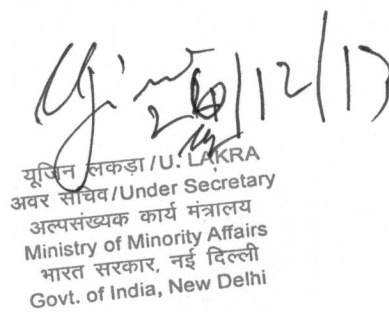 /12/13
यूजिन लकड़ा/U. LAKRA
अवर सचिव/Under Secretary
अल्पसंख्यक कार्य मंत्रालय
Ministry of Minority Affairs
भारत सरकार, नई दिल्ली
Govt. of India, New Delhi